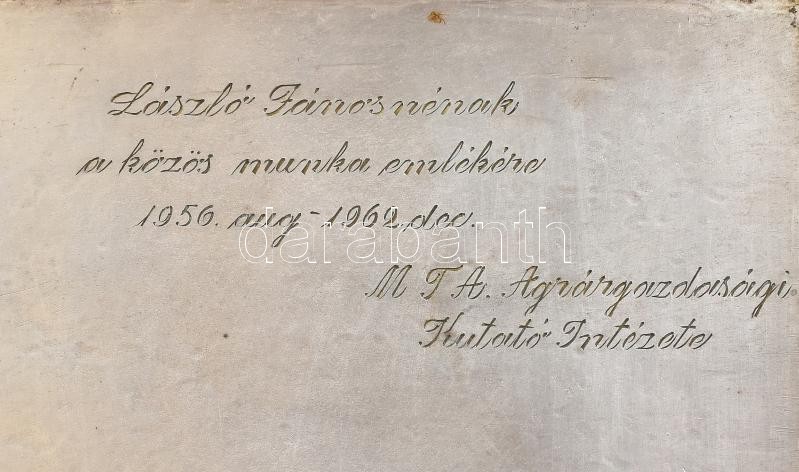 László Jánosnénak
a közös munka emlékére
1956. aug - 1962. dec.
darabanth
M T A. Agrárgazdasági
Kutató Intézete